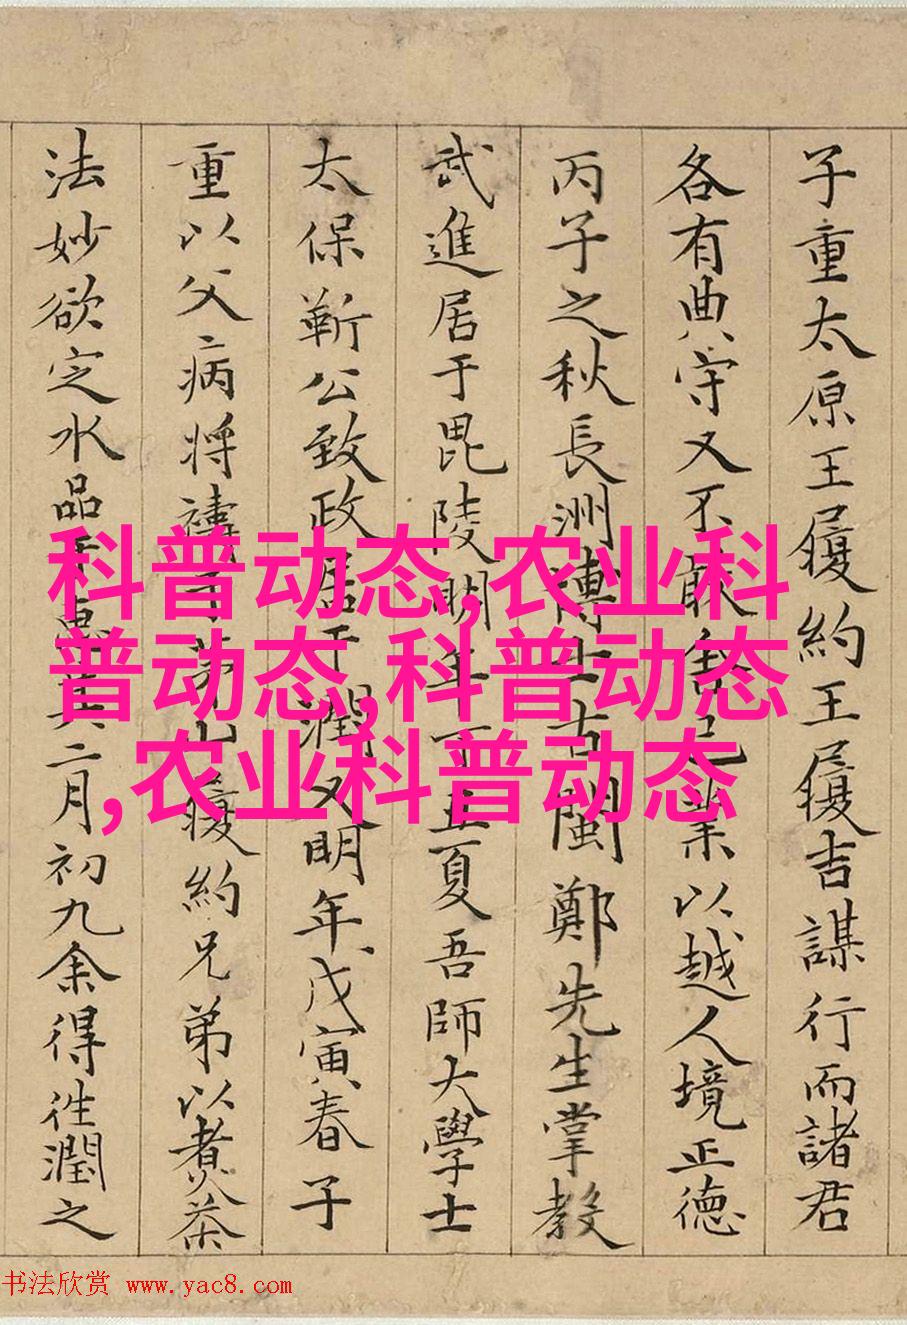 子重太原王履約王履吉謀行而諸君
各有典守又不能舍己業以越人境正德
丙子之秋長洲博士古閩鄭先生掌教
武進居于毘陵明年丁丑夏吾師大學士
太保靳公致政居于潤又明年戊寅春子
重以父病將禱于茅山履約兄弟以煮茶
法妙欲定水品于惠其二月初九余得徃潤之
科普动态,农业科
普动态,科普动态
,农业科普动态
书法欣赏 www.yac8.com